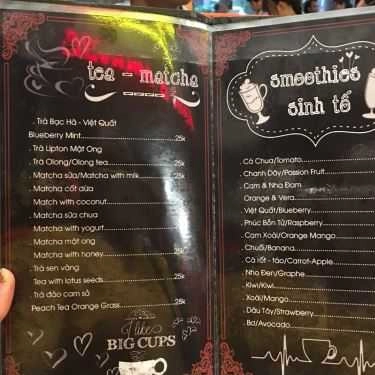 tea - matcha
. Trà Bạc Hà - Việt Quất
Blueberry Mint 25k
. Trà Lipton Mật Ong
. Trà Olong/Olong tea 25k
. Matcha sữa/Matcha with milk 25k
. Matcha cốt dừa
. Match with coconut 25k
. Matcha sữa chua
. Matcha with yogurt 25k
. Matcha mật ong
. Matcha with honey 25k
. Trà sen vàng
. Tea with lotus seeds 25k
. Trà đào cam sả
Peach Tea Orange Grass 25k
I like
BIG CUPS
smoothies
sinh tố
. Cà Chua/Tomato
. Chanh Dây/Passion Fruit
. Cam & Nha Đam
Orange & Vera
. Việt Quất/Blueberry
. Phúc Bồn Tử/Raspberry
. Cam Xoài/Orange Mango
. Chuối/Banana
. Cà rốt - táo/Carrot-Apple
. Nho Đen/Graphe
. Kiwi/Kiwi
. Xoài/Mango
. Dâu Tây/Strawberry
. Bơ/Avocado